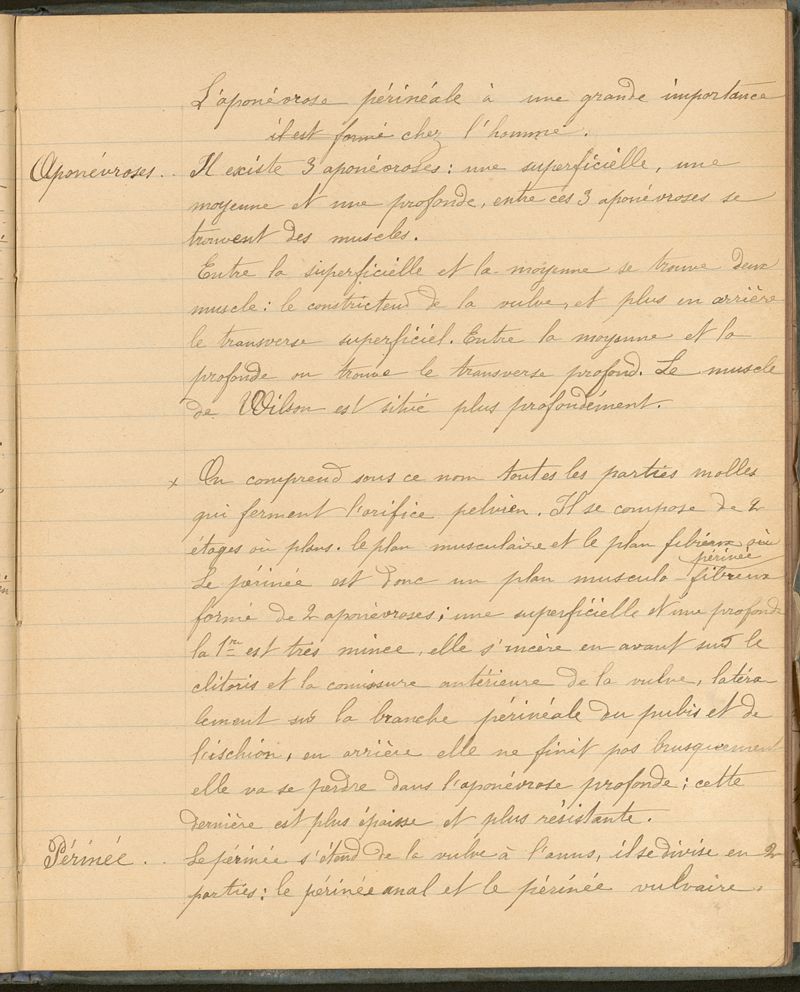 L'aponévrose périnéale à une grande importance
il est formé chez l'homme.
Aponévroses. Il existe 3 aponévroses: une superficielle, une
moyenne et une profonde, entre ces 3 aponévroses se
trouvent des muscles.
Entre la superficielle et la moyenne se trouve deux
muscle: le constricteur de la vulve, et plus en arrière
le transverse superficiel. Entre la moyenne et la
profonde on trouve le transverse profond. Le muscle
de Wilson est situé plus profondément.
x On comprend sous ce nom toutes les parties molles
qui ferment l'orifice pelvien. Il se compose de 2
étages où plans. le plan musculaire et le plan fibreux où
périnée
Le périnée est donc un plan musculo-fibreux
formé de 2 aponévroses; une superficielle et une profonde
la 1re est très mince, elle s'incère en avant sur le
clitoris et la comissure antérieure de la vulve, latéra-
lement sur la branche périnéale du pubis et de
l'ischion, en arrière elle ne finit pas brusquement
elle va se perdre dans l'aponévrose profonde; cette
dernière est plus épaisse et plus résistante.
Périnée. Le périnée s'étend de la vulve à l'anus, il se divise en 2
parties: le périnée anal et le périnée vulvaire.